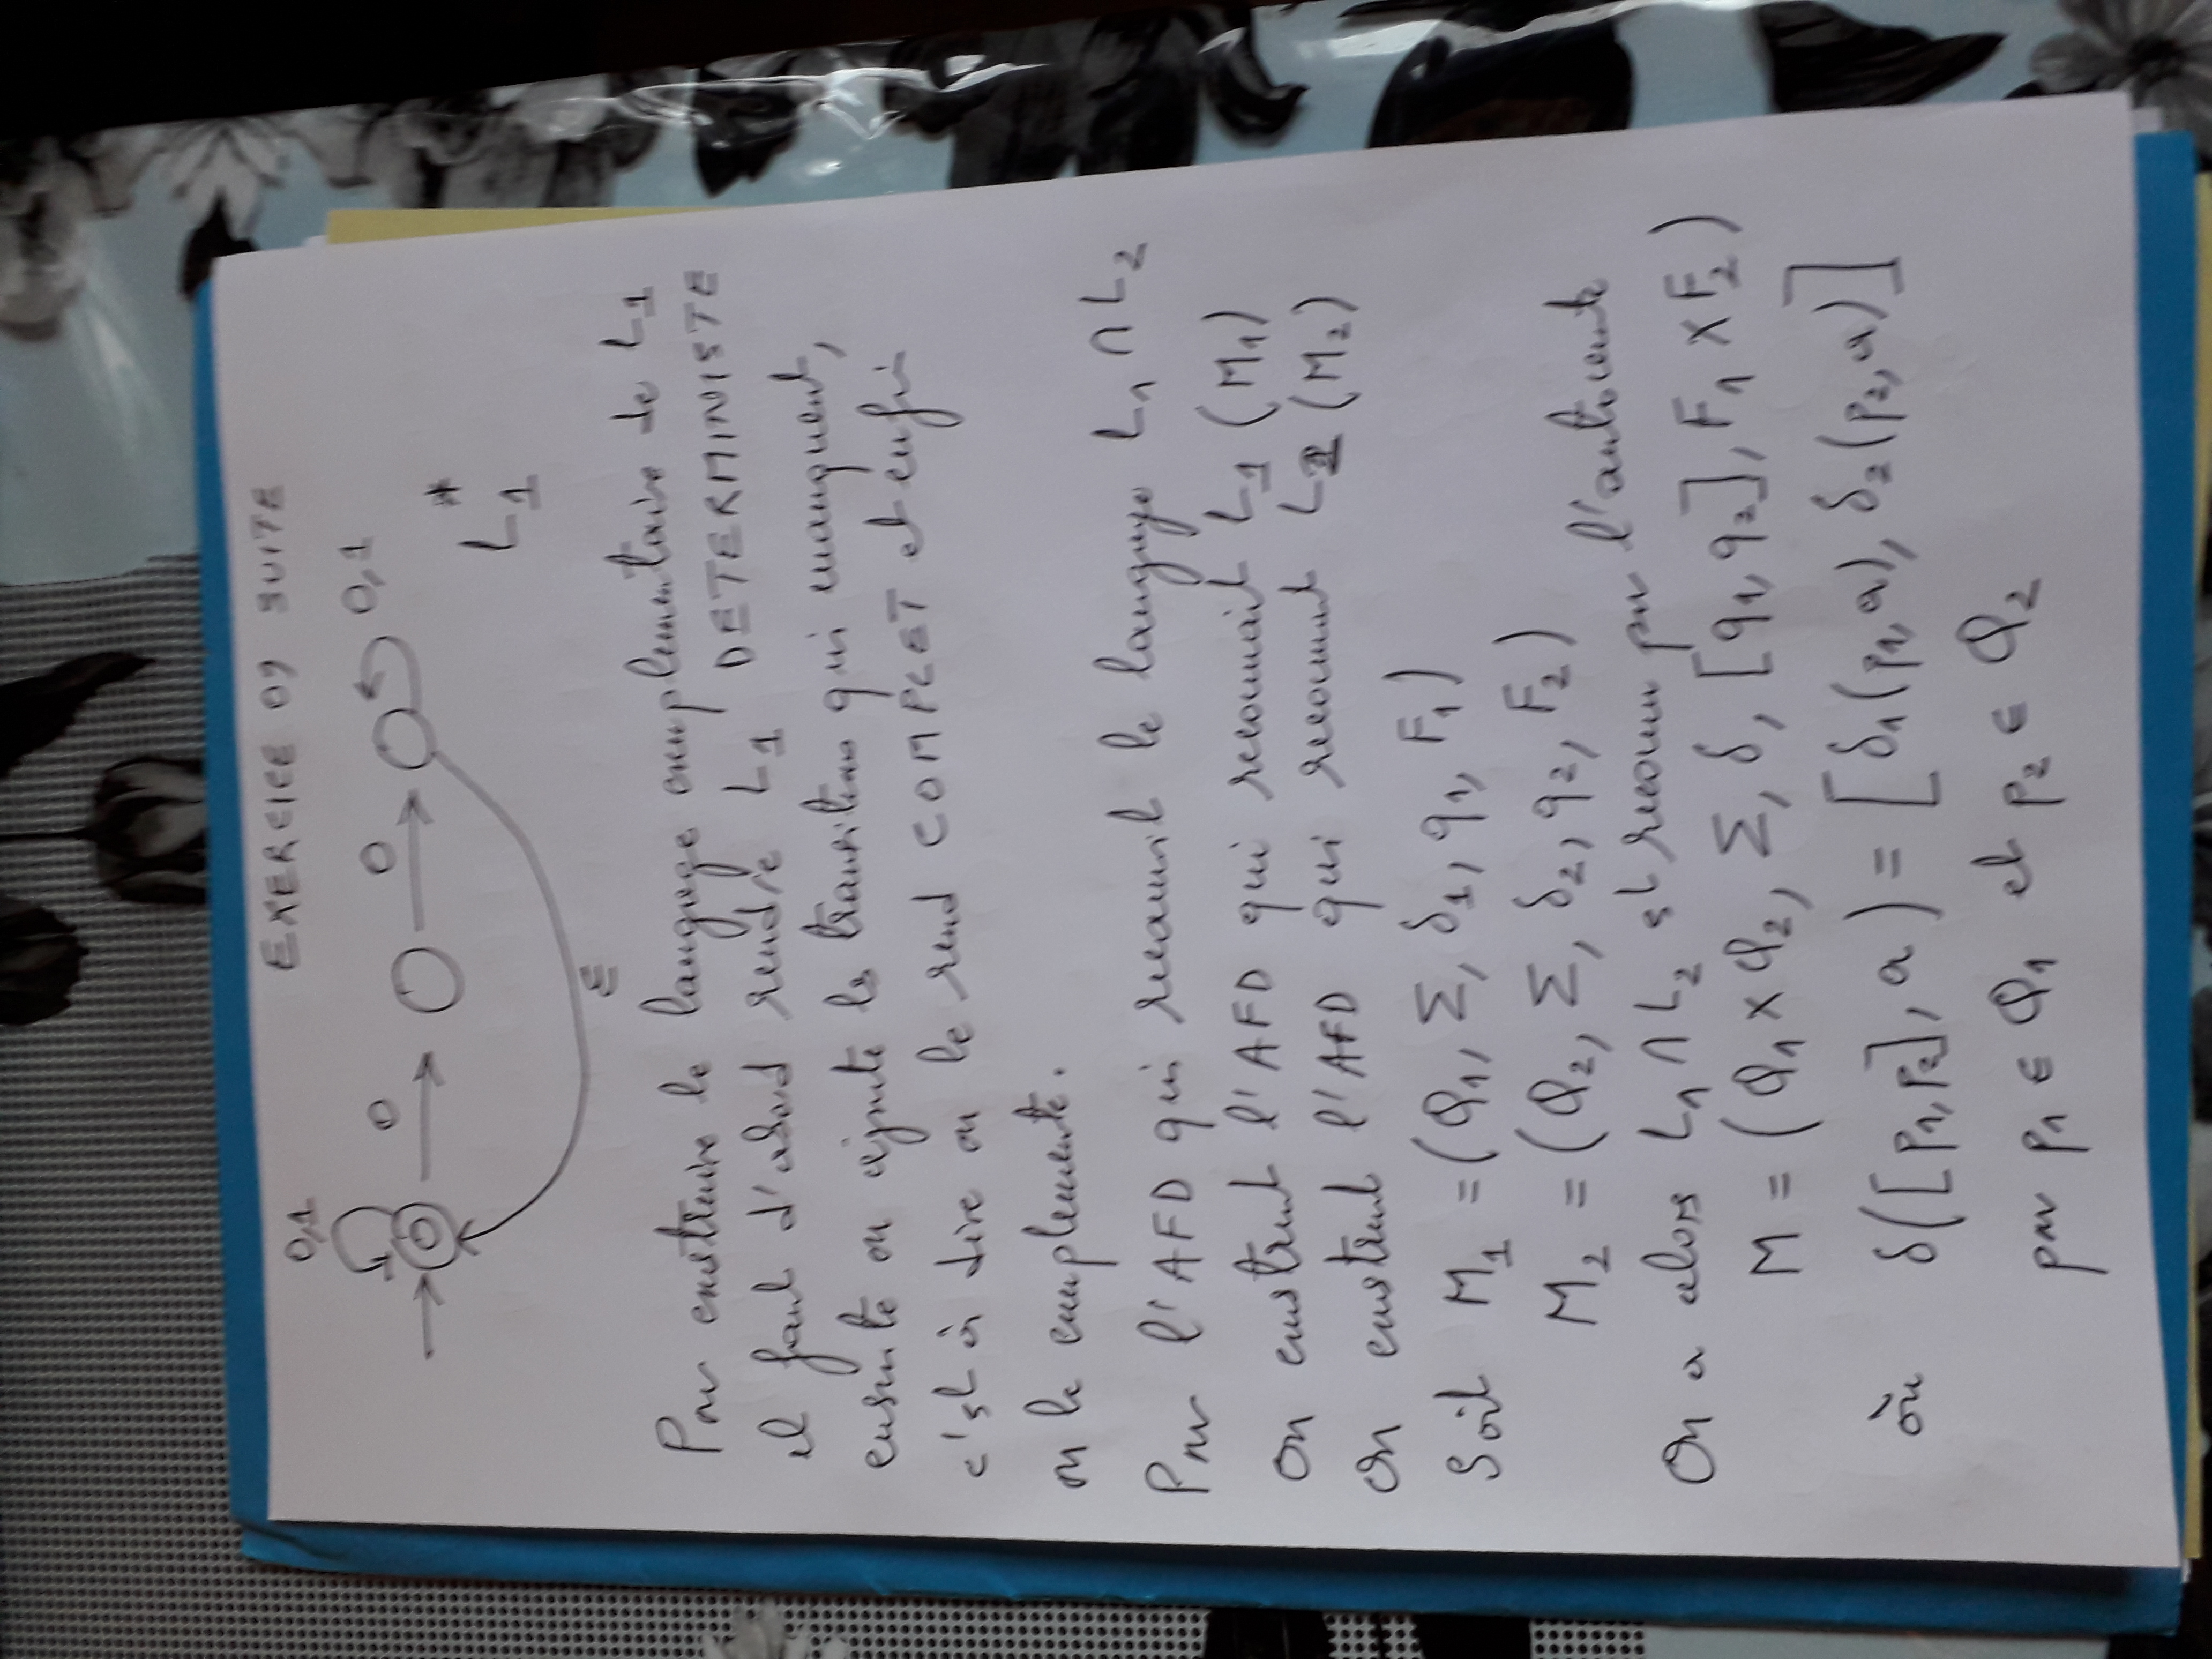 EXERCICE 09 SUITE
0,1
0
0
0,1
L₁*
ε
Pour construire le langage complementaire de L₁
il faut d'abord rendre L₁ DETERMINISTE
ensuite on ajoute les transitions qui manquent,
c'est à dire on le rend COMPLET et enfin
on le complemente.
Pour l'AFD qui reconnait le langage L₁ ∩ L₂
On construit l'AFD qui reconnait L₁ (M₁)
On construit l'AFD qui reconnait L₂ (M₂)
Soit M₁ = (Q₁, Σ, δ₁, q₁, F₁)
M₂ = (Q₂, Σ, δ₂, q₂, F₂)
On a alors L₁ ∩ L₂ est reconnu par l'automate
M = (Q₁ × Q₂, Σ, δ, [q₁, q₂], F₁ × F₂)
où δ([p₁, p₂], a) = [δ₁(p₁, a), δ₂(p₂, a)]
pour p₁ ∈ Q₁ et p₂ ∈ Q₂